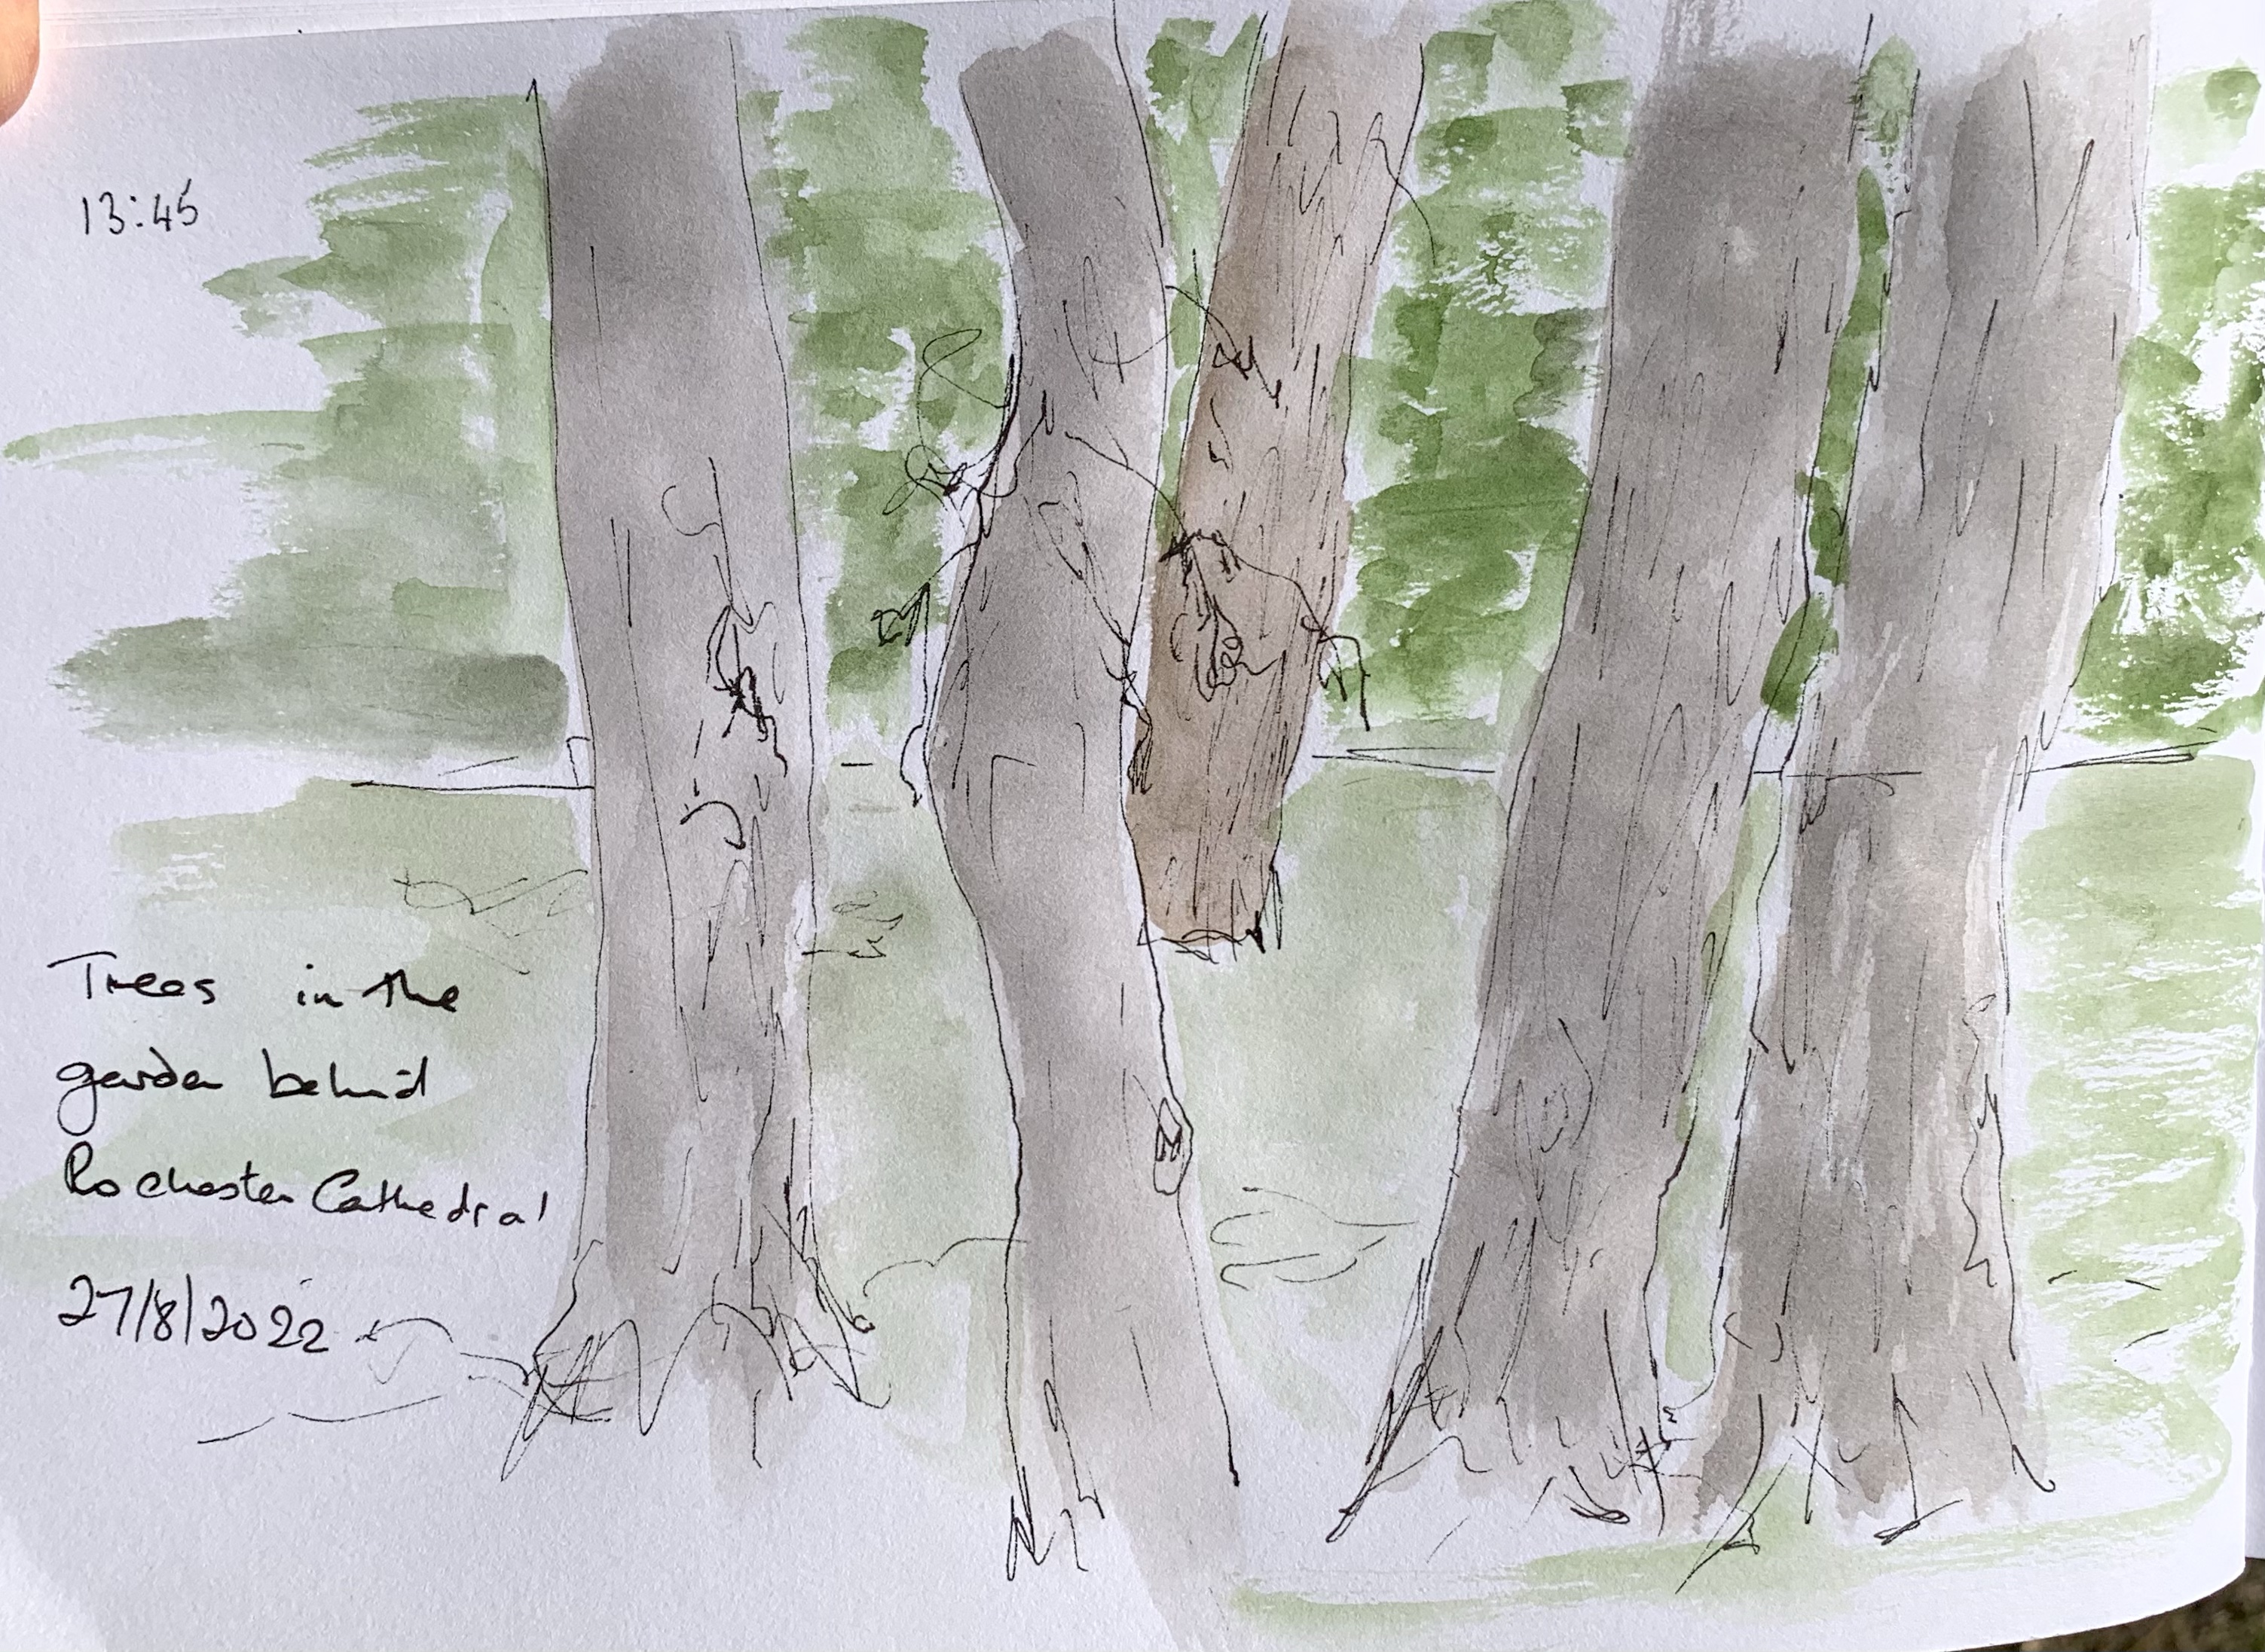 13:45
Trees in the
garden behind
Rochester Cathedral
27/8/2022